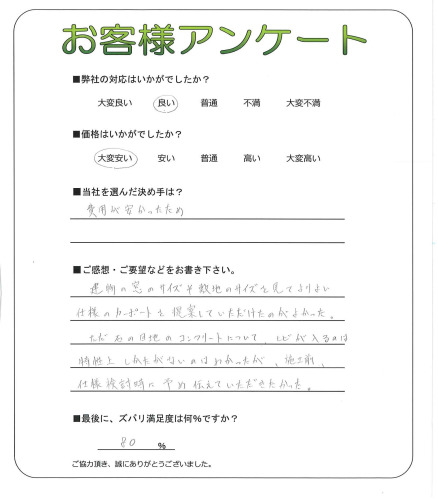 お客様アンケート
■弊社の対応はいかがでしたか？
大変良い 良い 普通 不満 大変不満
■価格はいかがでしたか？
大変安い 安い 普通 高い 大変高い
■当社を選んだ決め手は？
費用が安かったため
■ご感想・ご要望などをお書き下さい。
建物の窓のサイズや敷地のサイズを見てよりよい
仕様のカーポートを提案していただけたのがよかった。
ただ石の目地のコンクリートについて、ヒビが入るのは
特性上しかたがないのはわかったが、施工前、
仕様検討時に予め伝えていただきたかった。
■最後に、ズバリ満足度は何％ですか？
80 ％
ご協力頂き、誠にありがとうございました。